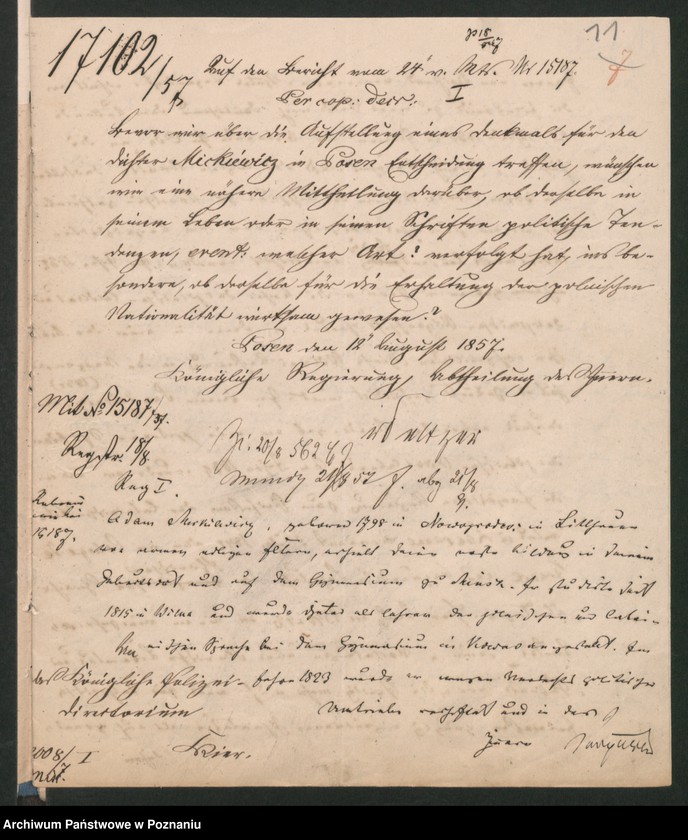 11
7
17102/57
Auf den Bericht vom 24' v. Mts. Nr 15187.
Per cop: decr: I
Bevor wir über die Aufstellung eines Denkmals für den
Dichter Mickiewicz in Posen Entscheidung treffen, wünschen
wir eine nähere Mittheilung darüber, ob derselbe in
seinem Leben oder in seinen Schriften politische Ten-
denzen, event: welcher Art? verfolgt hat, ins be-
sondere, ob derselbe für die Erhaltung der polnischen
Nationalität wirksam gewesen?
Posen den 12' August 1857.
Königliche Regierung, Abtheilung des Innern.
Mit No 15187/57.
Regstr. 18/8.
20/8 562
Mund 21/8 57 abg 21/8
Reg I.
15187.
Adam Mickiewicz, geboren 1798 in in Litthauen
von armen adligen Eltern, erhielt seine erste Bildung in seinem
Geburtsort und auf dem Gymnasium zu Minsk. Er studirte seit
1815 in Wilna und wurde später als Lehrer der polnischen und latei-
nischen Sprache bei dem Gymnasium in Kowno angestellt. Im
An
das Königliche Polizei-
Jahre 1823 wurde er wegen Verdachts politischer
Directorium
Umtriebe verhaftet und in das
Hier.
Innere
I